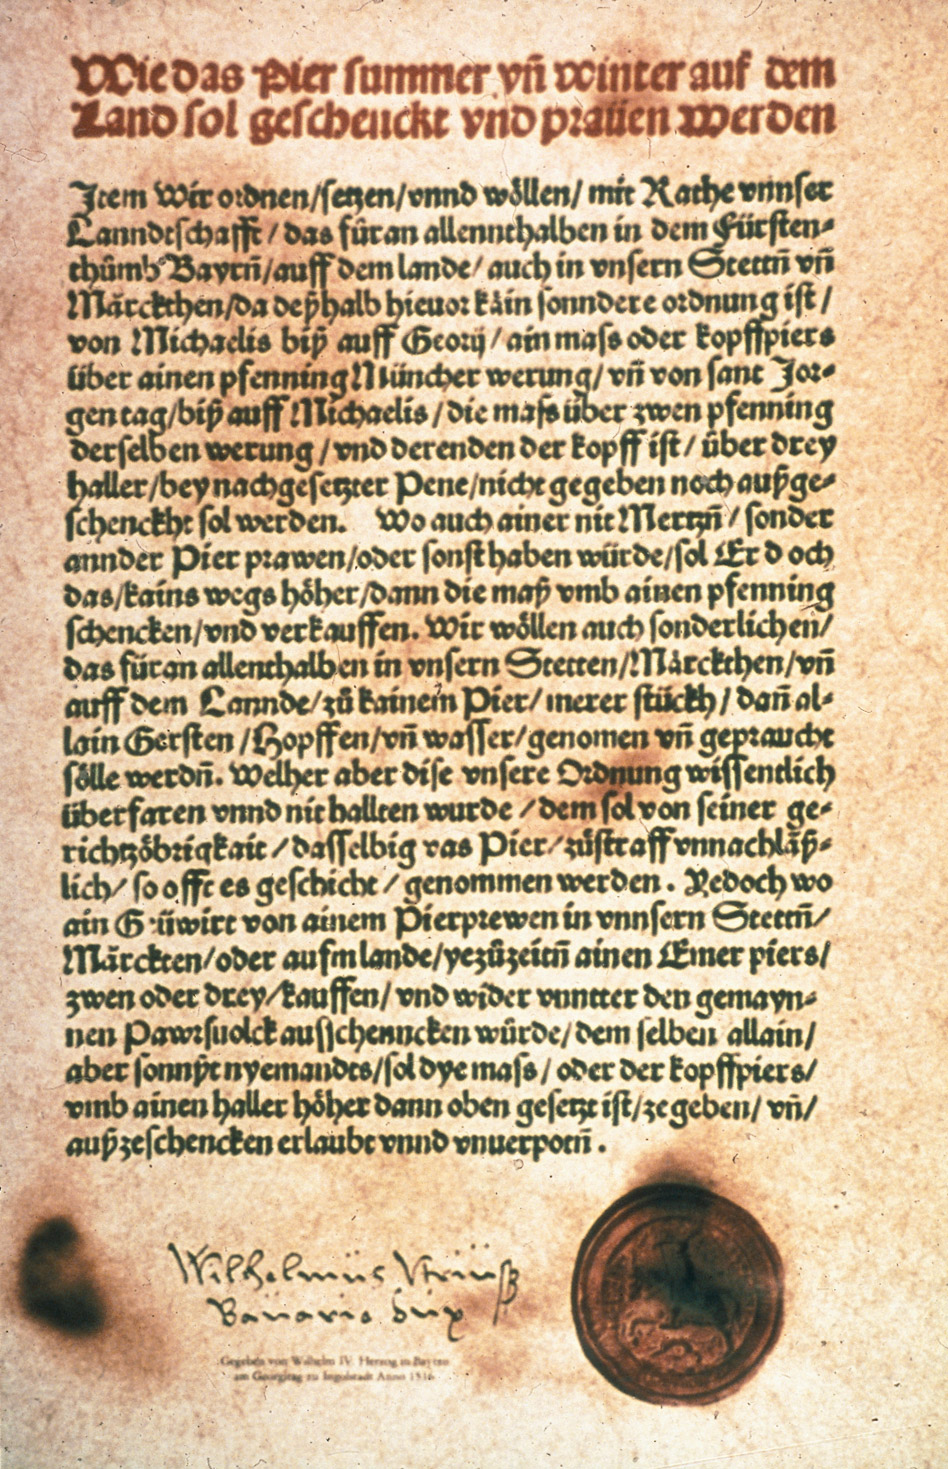 Wie das Pier summer vñ winter auf dem
Land sol geschenckt vnd prauen werden
Item Wir ordnen/setzen/vnnd wöllen/ mit Rathe vnnser
Lanndtschafft/ das füran allennthalben in dem Fürsten-
thůmb Bayrñ/auff dem lande/ auch in vnsern Stettñ vñ
Märckthen/da deßhalb hieuor kain sonndere ordnung ist /
von Michaelis biß auff Georij/ ain mass oder kopffpiers
über ainen pfenning Müncher werung/ vñ von sant Jor-
gen tag/biß auff Michaelis / die mass über zwen pfenning
derselben werung / vnd derenden der kopff ist/ über drey
haller/bey nachgesetzter Pene/nicht gegeben noch außge-
schenckht sol werden. Wo auch ainer nit Mertzñ / sonder
annder Pier prawen/oder sonst haben würde/sol Er d och
das/kains wegs höher/dann die maß vmb ainen pfenning
schencken/vnd verkauffen. Wir wöllen auch sonderlichen/
das füran allenthalben in vnsern Stetten/Märckthen/vñ
auff dem Lannde/zů kainem Pier/ merer stückh/ dañ al-
lain Gersten /Hopffen/vñ wasser/genomen vñ gepraucht
sölle werdñ. Welher aber dise vnsere Ordnung wissentlich
überfaren vnnd nit hallten wurde / dem sol von seiner ge-
richtzöbrigkait / dasselbig vas Pier/zůstraff vnnachläß-
lich/ so offt es geschicht / genommen werden. Yedoch wo
ain Güwirt von ainem Pierprewen in vnnsern Stettñ/
Märckten/oder aufm lande/yezůzeitñ ainen Emer piers/
zwen oder drey/kauffen/ vnd wider vnntter den gemayn-
nen Pawrsuolck ausschenncken würde/ dem selben allain/
aber sonnßt nyemandts/sol dye mass/ oder der kopffpiers/
vmb ainen haller höher dann oben gesetzt ist/ze geben/ vñ/
außzeschencken erlaubt vnnd vnuerpotñ.
Wilhelmus
Bavarie dux
Gegeben von Wilhelm IV. Herzog in Bayern
am Georgitag zu Ingolstadt Anno 1516